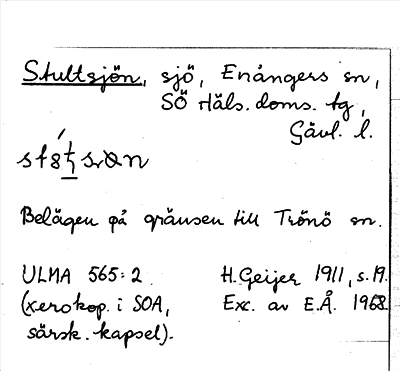 Stultsjön, sjö, Enångers sn,
SÖ Häls. doms. tg,
Gävl. l.
Belägen på gränsen till Trönö sn.
ULMA 565:2 H. Geijer 1911, s. 19.
(xerokop. i SOA, Exc. av E.Å. 1968
särsk. kapsel).